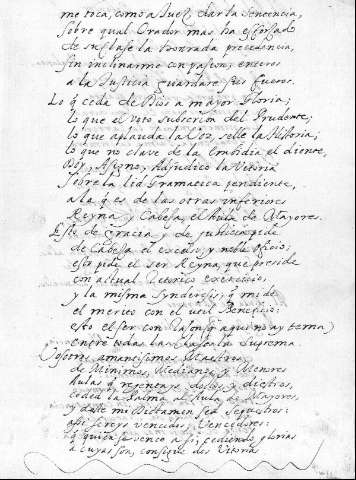 me toca, como a Juez dar la Sentencia,
sobre qual Orador mas ha esforzado
de su clase la honrada precedencia,
sin inclinarme con pasion; enteros
a la Justicia guardare sus fueros.
Lo q ceda de Dios a mayor Gloria;
lo que el voto subscriva del Prudente;
lo que aplauda la Voz, selle la Historia,
lo que no clave de la Embidia el diente,
Doy, Asigno, Adjudico la Vitoria
sobre la lid Gramatica pendiente,
a la q es de las otras inferiores
Reyna, y Cabesa, el Aula de Mayores.
Esto de gracia y de justicia pide
de Cabesa el excelso, y noble oficio;
esto pide el ser Reyna, que preside
con actual Teorico exercicio,
y la misma Synderesis, q mide
el merito con el util Beneficio:
esto el ser con Rason (q aqui no ay tema)
entre todas las la Suprema.
Vosotros amantisimos Maestros,
de Minimos, Medianos, y Menores
Aulas q regenteys doctos, y diestros,
ceded la Palma al Aula de Mayores,
y daste mi Dictamen sea
asi sereys vencidos, y Vencedores:
q quien se vence a si, cediendo glorias
a cuyas son, consigue dos Vitorias